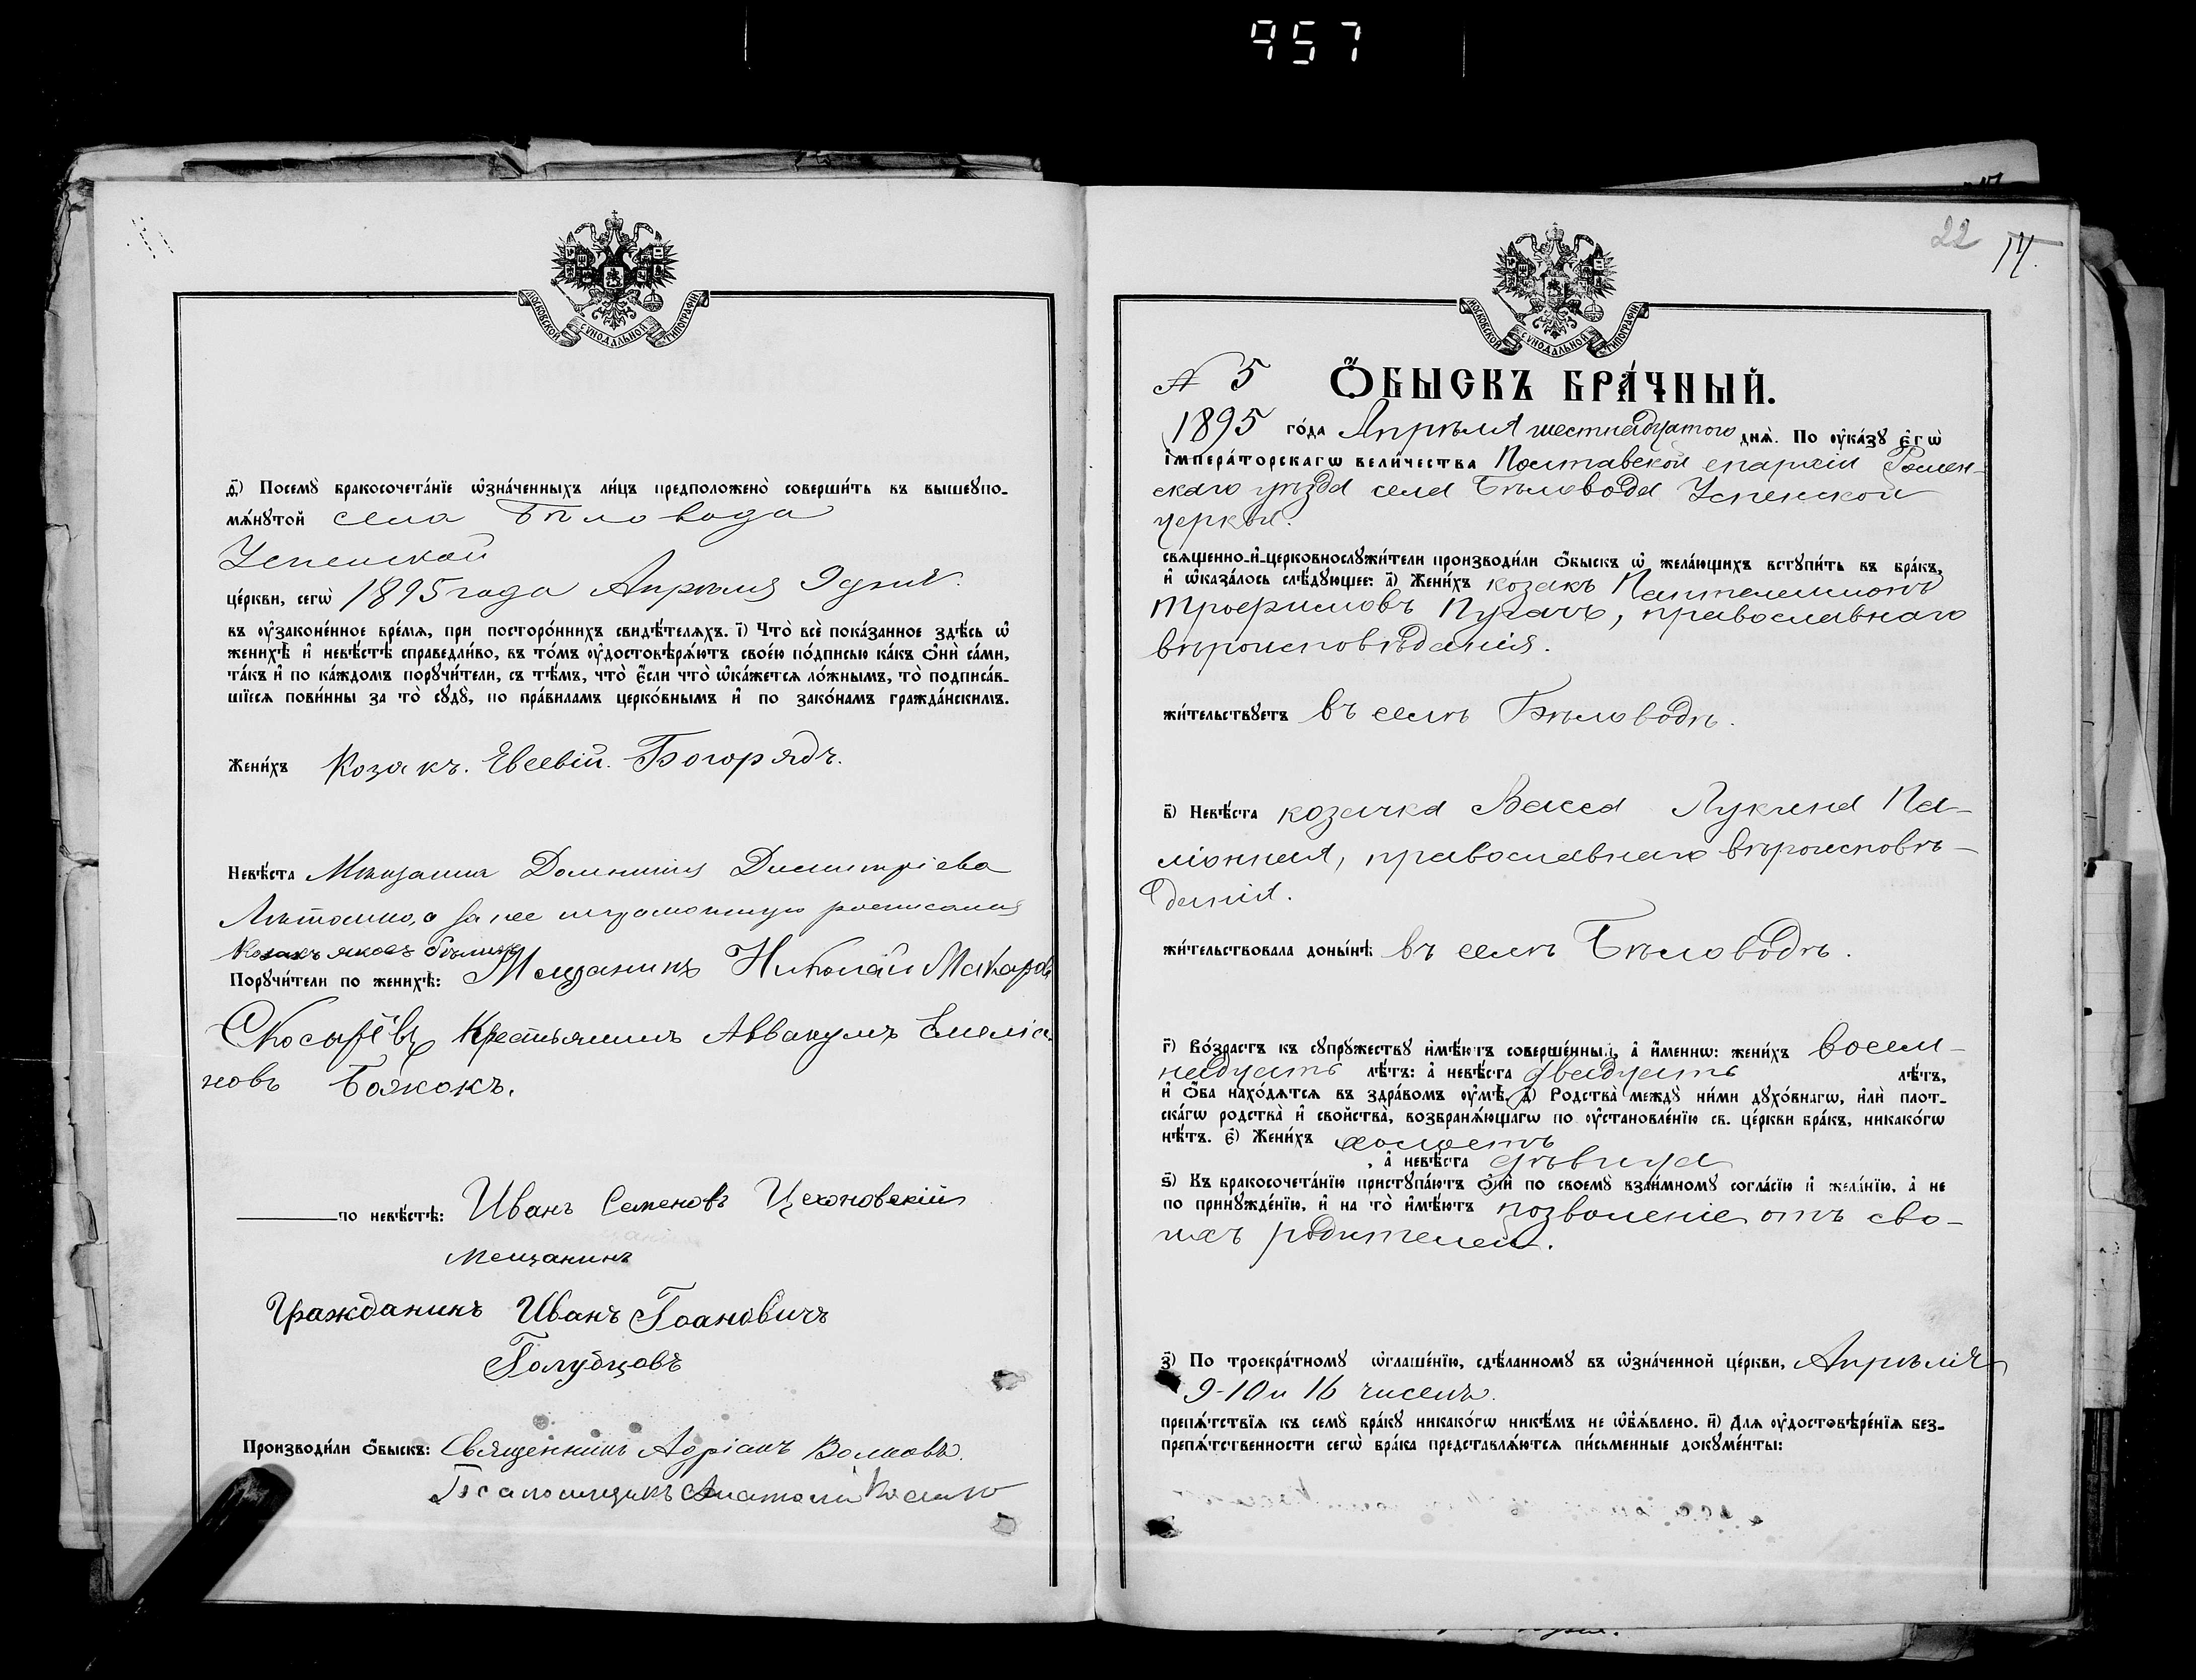 957
МОСКОВСКОЙ СѴНОДАЛЬНОЙ ТИПОГРАФІИ
ѳ҃) Посемꙋ̀ бракосочета́нїе ѡ҆зна́ченныхъ ли́цъ предположено̀ соверши́ть въ вышеꙋпо-
мѧ́нꙋтой села Бѣловода
Успенской
це́ркви, сегѡ̀ 1895 года Апрѣля 9 дня
въ ᲂу҆законе́нное вре́мѧ, при посторо́ннихъ свидѣ́телѧхъ. і҃) Что̀ всѐ пока́занное здѣ́сь ѡ҆
женихѣ̀ и҆ невѣ́стѣ справедли́во, въ то́мъ ᲂу҆достовѣрѧ́ютъ свое́ю по́дписью ка́къ ѻ҆нѝ са́ми,
та́къ и҆ по ка́ждомъ порꙋчи́тели, съ тѣ́мъ, что̀ є҆́сли что̀ ѡ҆ка́жетсѧ ло́жнымъ, то̀ подписа́в-
шїесѧ пови́нны за то̀ сꙋдꙋ̀, по пра́виламъ церко́внымъ и҆ по зако́намъ гражда́нскимъ.
Жени́хъ Козакъ. Евсевій. Богорядъ.
Невѣ́ста Мѣщанка Домникия Димитріева
за нее неграмотную росписался
Козакъ Яковъ
Порꙋчи́тели по женихѣ̀: Мещанинъ Николай Макаровъ
Скосырёвъ Крестьянинъ Аввакумъ Емеліа-
новъ Боякокъ.
по невѣ́стѣ: Иванъ Семеновъ Цехоновскій
Мещанинъ
Гражданинъ Иванъ Іоановичъ
Голубцовъ
Производи́ли ѻ҆́быскъ: Священникъ Адріанъ Волковъ.
Псаломщикъ Анатолій
22 17.
МОСКОВСКОЙ СѴНОДАЛЬНОЙ ТИПОГРАФІИ
№ 5 Ѻ҆́БЫСКЪ БРА́ЧНЫЙ.
1895 го́да Апрѣля шестнадцатого днѧ̀. По ᲂу҆ка́зꙋ є҆гѡ̀
і҆мпера́торскагѡ вели́чества Полтавской епархіи Ромен-
скаго уѣзда села Бѣловода Успенской
церкви.
свѧщенно-и҆-церковнослꙋжи́тели производи́ли ѻ҆́быскъ ѡ҆ жела́ющихъ встꙋпи́ть въ бра́къ,
и҆ ѡ҆каза́лось слѣ́дꙋющее: а҃) Жени́хъ козакъ Пантелеимонъ
Трофимовъ Пугачъ, православнаго
вѣроисповѣданія.
жи́тельствꙋетъ въ селѣ Бѣловодѣ.
в҃) Невѣ́ста козачка Васса Лукина Па-
ліонная, православнаго вѣроисповѣ-
данія.
жи́тельствовала доны́нѣ въ селѣ Бѣловодѣ.
г҃) Во́зрастъ къ сꙋпрꙋжествꙋ и҆мѣ́ютъ соверше́нный, а҆ и҆́меннѡ: жени́хъ восем-
надцать лѣ́тъ: а҆ невѣ́ста двадцать лѣ́тъ,
и҆ ѻ҆́ба нахо́дѧтсѧ въ здра́вомъ ᲂу҆мѣ̀. д҃) Родства̀ междꙋ̀ ни́ми дꙋхо́внагѡ, и҆лѝ плот-
ска́гѡ родства̀ и҆ сво́йства̀, возбранѧ́ющагѡ по ᲂу҆становле́нїю св. це́ркви бра́къ, никако́гѡ
нѣ́тъ. є҃) Жени́хъ холостъ
, а҆ невѣ́ста дѣвица
ѕ҃) Къ бракосочета́нїю пристꙋпа́ютъ ѻ҆нѝ по своемꙋ̀ взаи́мномꙋ согла́сїю и҆ жела́нїю, а҆ не
по принꙋжде́нїю, и҆ на то̀ и҆мѣ́ютъ позволеніе отъ сво-
ихъ родителей.
з҃) По троекра́тномꙋ ѡ҆глаше́нїю, сдѣ́ланномꙋ въ ѡ҆зна́ченной це́ркви, Апрѣлія
9-10 и 16 чиселъ.
препѧ́тствїѧ къ семꙋ̀ бра́кꙋ никако́гѡ никѣ́мъ не ѡ҆б̾ѧ́влено. и҃) Длѧ ᲂу҆достовѣре́нїѧ без-
препѧ́тственности сегѡ̀ бра́ка представлѧ́ютсѧ пи́сьменные докꙋме́нты: